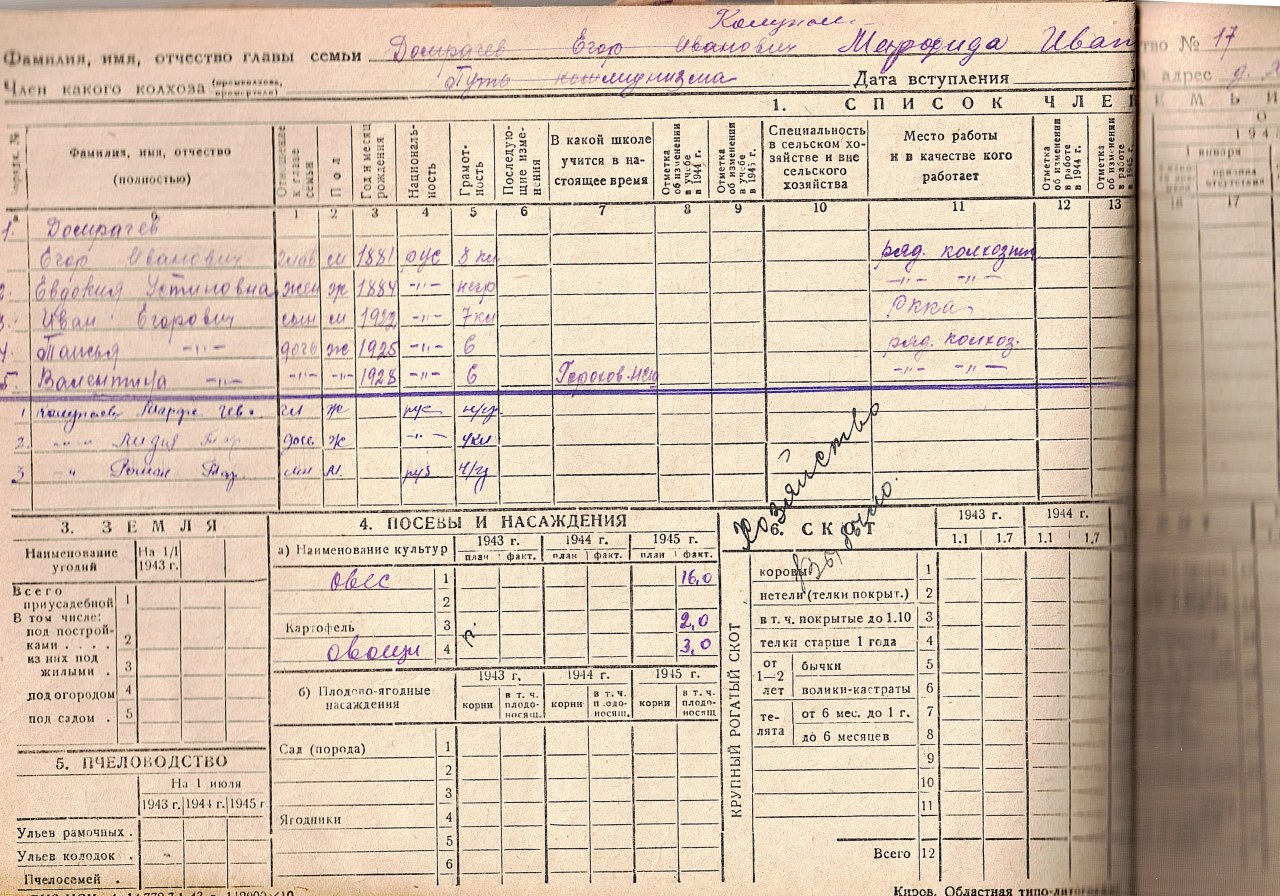 Фамилия, имя, отчество главы семьи Домрачев Егор Иванович Иван
Член какого колхоза Путь коммунизма Дата вступления
№ 17
адрес д.
1. СПИСОК ЧЛЕ
Фамилия, имя, отчество (полностью)
Отношение к главе семьи
Пол
Год и месяц рождения
Националь-ность
Грамот-ность
Последую-щие изме-нения
В какой школе учится в на-стоящее время
Отметка об изменении в учебе в 1944 г.
Отметка об изменении в учебе в 1945 г.
Специальность в сельском хо-зяйстве и вне сельского хозяйства
Место работы и в качестве кого работает
Отметка об изменении в работе в 1944 г.
Отметка об изменении в работе в 1945 г.
1 января
1 2 3 4 5 6 7 8 9 10 11 12 13 16 17
1. Домрачев
Егор Иванович глав м 1881 рус 3 кл ряд. колхозник
2. Евдокия Устиновна жен ж 1884 -"- негр -"- -"-
3. Иван Егорович сын м 1922 -"- 7 кл РККА
4. Таисья -"- дочь ж 1925 -"- 6 ряд. колхоз.
5. Валентина -"- -"- -"- 1928 -"- 6 -"- -"-
1 Марфа гл ж рус н/гр
2. -"- Лидия дочь ж -"- 4кл
3 -"- Роман сын м. рус н/г
Хозяйство
выбыло.
3. ЗЕМЛЯ
Наименование угодий На 1/I 1943 г.
Всего приусадебной 1
В том числе:
под построй-ками 2
из них под жилыми 3
под огородом 4
под садом 5
5. ПЧЕЛОВОДСТВО
На 1 июля
1943 г. 1944 г. 1945 г
Ульев рамочных
Ульев колодок
Пчелосемей
4. ПОСЕВЫ И НАСАЖДЕНИЯ
а) Наименование культур 1943 г. 1944 г. 1945 г.
план факт. план факт. план факт.
овес 1 16,0
2
Картофель 3 2,0
овощи 4 3,0
б) Плодово-ягодные насаждения 1943 г. 1944 г. 1945 г.
корни в т. ч. плодо-носящ. корни в т. ч. плодо-носящ. корни в т. ч. плодо-носящ
Сад (порода) 1
2
3
Ягодники 4
5
6
6. СКОТ
1943 г. 1944 г.
1.1 1.7 1.1 1.7
КРУПНЫЙ РОГАТЫЙ СКОТ
коровы 1
нетели (телки покрыт.) 2
в т. ч. покрытые до 1.10 3
телки старше 1 года 4
от 1—2 лет бычки 5
волики-кастраты 6
те-лята от 6 мес. до 1 г. 7
до 6 месяцев 8
9
10
11
Всего 12
Киров. Областная